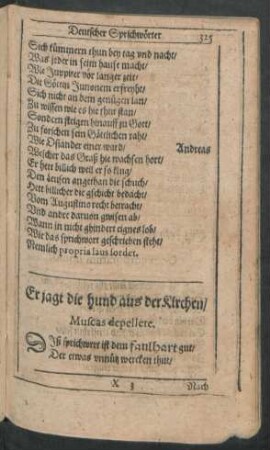 Deutscher Sprichwörter 325
Sich kümmern thun bey tag vnd nacht/
Was jeder in seim hause macht/
Wie Juppiter vor langer zeit/
Die Göttin Junonem erfreyht/
Sich nicht an dem genügen lan/
Zu wissen wie es hie thut stan/
Sondern steigen hinauff zu Gott/
Zu forschen sein Göttlichen raht/
Wie Osiander einer ward/
Andreas
Welcher das Graß hie wachsen hort/
Er hett billich weil er so
Den angethan die schuch/
Hett billicher die gschicht bedacht/
Vom Augustino recht betracht/
Vnd ander daruon gwisen ab/
Wann in nicht ghindert eignes lob/
Wie das sprichwort geschrieben steht/
Nemlich propria laus sordet.
Er jagt die hund aus der Kirchen/
Muscas depellere.
Diß sprichwort ist dem faulhart gut/
Der etwas vnnütz wercken thut/
X 3 Nach